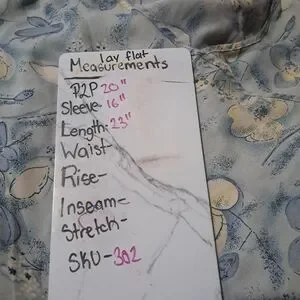 lay flat
Measurements
P2P 20"
Sleeve 16"
Length: 23"
Waist-
Rise-
Inseam-
Stretch-
SKU-302